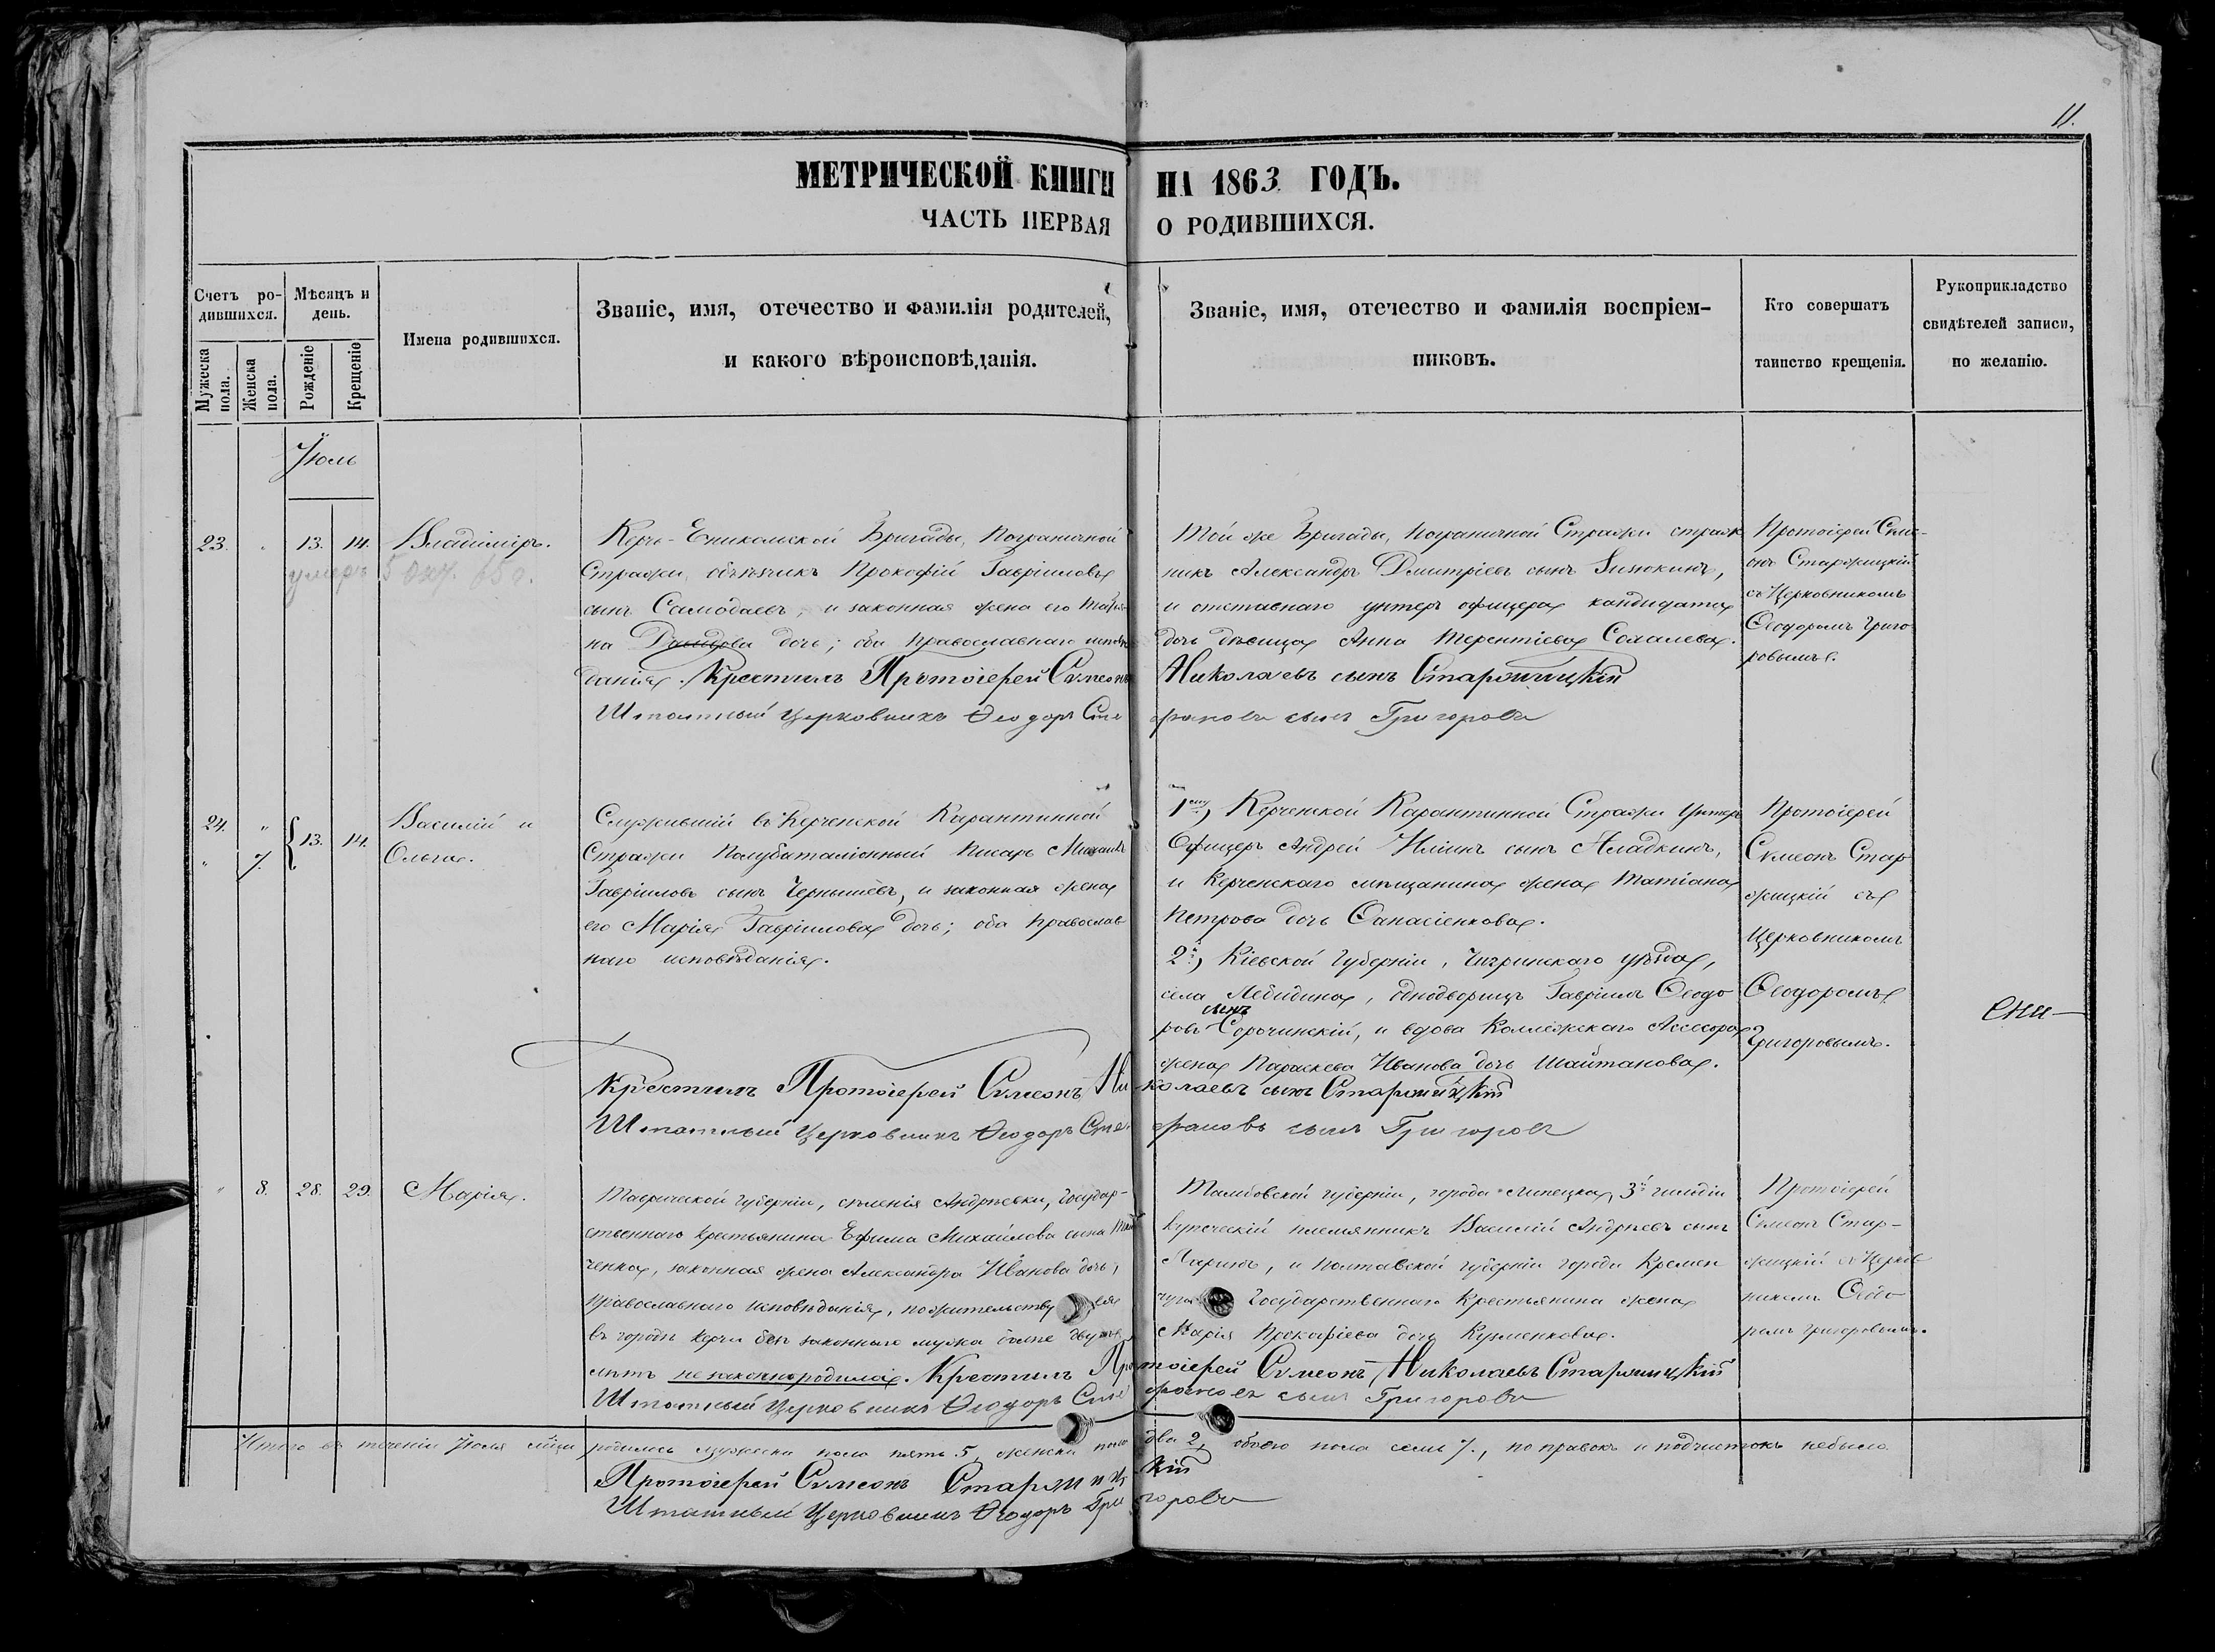 11.
МЕТРИЧЕСКОЙ КНИГИ НА 1863 ГОДЪ.
ЧАСТЬ ПЕРВАЯ О РОДИВШИХСЯ.
Счетъ ро-
дившихся.
Мужеска пола.
Женска пола.
Мѣсяцъ и день.
Рожденіе
Крещеніе
Имена родившихся.
Званіе, имя, отечество и фамилія родителей,
и какого вѣроисповѣданія.
Званіе, имя, отечество и фамилія воспріем-
никовъ.
Кто совершатъ
таинство крещенія.
Рукоприкладство
свидѣтелей записи,
по желанію.
Іюль
23. " 13. 14. Владиміръ.
умеръ 5
Керчь-Еникольской Бригады, Пограничной
Стражи, объѣзчикъ Прокофій Гавріиловъ
сынъ Самодаевъ, и законная жена его
на дочь; оба православнаго исповѣ
данія. Крестилъ Протоіерей Сѵмеонъ Николаевъ сынъ Старжицкій
Штатный Церковникъ Ѳеодоръ Сте фановъ сынъ Григоровъ
Той же Бригады, Пограничной Стражи страж
никъ Александръ Дмитріевъ сынъ
и отставнаго унтеръ офицера кандидата
дочь дѣвица Анна Терентіева
Протоіерей Сѵме-
онъ Старжицкій
съ Церковникомъ
Ѳеодоромъ Григо-
ровымъ.
24. "
" 7.
13. 14.
Василій и
Ольга.
Служившій въ Керченской Карантинной
Стражи Полубаталіонный Писарь Михаилъ
Гавріиловъ сынъ Чернышёвъ, и законная жена
его Марія Гавріилова дочь; оба православ
наго исповѣданія.
Крестилъ Протоіерей Сѵмеонъ Николаевъ сынъ Старжицкій
Штатный Церковникъ Ѳеодоръ Сте фановъ сынъ Григоровъ
1ему, Керченской Карантинной Стражи Унтеръ
Офицеръ Андрей Иліинъ сынъ Аладкинъ,
и Керченскаго мѣщанина жена Татіана
Петрова дочь Ѳанасіенкова.
2й, Кіевской Губерніи, Чигринскаго уѣзда,
села Лебидина, однодворецъ Гавріилъ Ѳеодо
ровъ сынъ Сорочинскій, и вдова Коллежскаго Ассесора
жена Параскева Иванова дочь Шайтанова.
Протоіерей
Сѵмеонъ Стар
жицкій съ
Церковникомъ
Ѳеодоромъ
Григоровымъ.
" 8. 28. 29. Марія.
Таврической губерніи, селенія Андреевки, Государ-
ственнаго крестьянина Ефима Михайлова сына
ченка, законная жена Александра Иванова дочь,
Православнаго исповѣданія, по жительству ея
въ городѣ Керчи безъ законнаго мужа болѣе двухъ
лѣтъ незаконнородила. Крестилъ Протоіерей Сѵмеонъ Николаевъ Старжицкій
Штатный Церковникъ Ѳеодоръ Сте фановъ сынъ Григоровъ
Тамбовской губерніи, города Липецка, 3й гильдіи
купеческій племянникъ Василій Андреевъ сынъ
Ларинъ, и Полтавской губерніи города Кремен
чуга Государственнаго Крестьянина жена
Марія Прокофіева дочь Кузменкова.
Протоіерей
Сѵмеонъ Стар-
жицкій съ Церков
никомъ Ѳеодо
ромъ Григоровымъ.
Итого въ теченіи Іюля мѣсяца родилось мужеска пола пять 5, женска пола два 2, обоего пола семь 7., поправокъ и подчистокъ небыло.
Протоіерей Сѵмеонъ Старжицкій
Штатный Церковникъ Ѳеодоръ Григоровъ